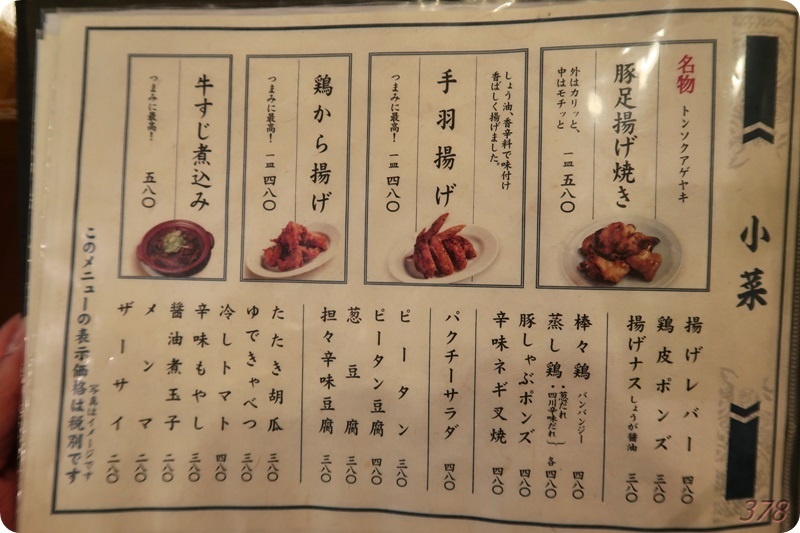 小菜
名物
トンソクアゲヤキ
豚足揚げ焼き
外はカリッと、
中はモチッと
一皿 五八〇
しょう油、香辛料で味付け
香ばしく揚げました。
手羽揚げ
つまみに最高! 一皿 四八〇
鶏から揚げ
つまみに最高! 一皿 四八〇
牛すじ煮込み
つまみに最高! 五八〇
揚げレバー 四八〇
鶏皮ポンズ 三八〇
揚げナス しょうが醤油 三八〇
棒々鶏 バンバンジー 四八〇
蒸し鶏 ・葱だれ ・四川辛味だれ 各 四八〇
豚しゃぶポンズ 四八〇
辛味ネギ叉焼 四八〇
パクチーサラダ 四八〇
ピータン 三八〇
ピータン豆腐 四八〇
葱豆腐 三八〇
担々辛味豆腐 三八〇
たたき胡瓜 三八〇
ゆできゃべつ 三八〇
冷しトマト 四八〇
辛味もやし 三八〇
醤油煮玉子 二八〇
メンマ 二八〇
ザーサイ 二八〇
写真はイメージです
このメニューの表示価格は税別です
378